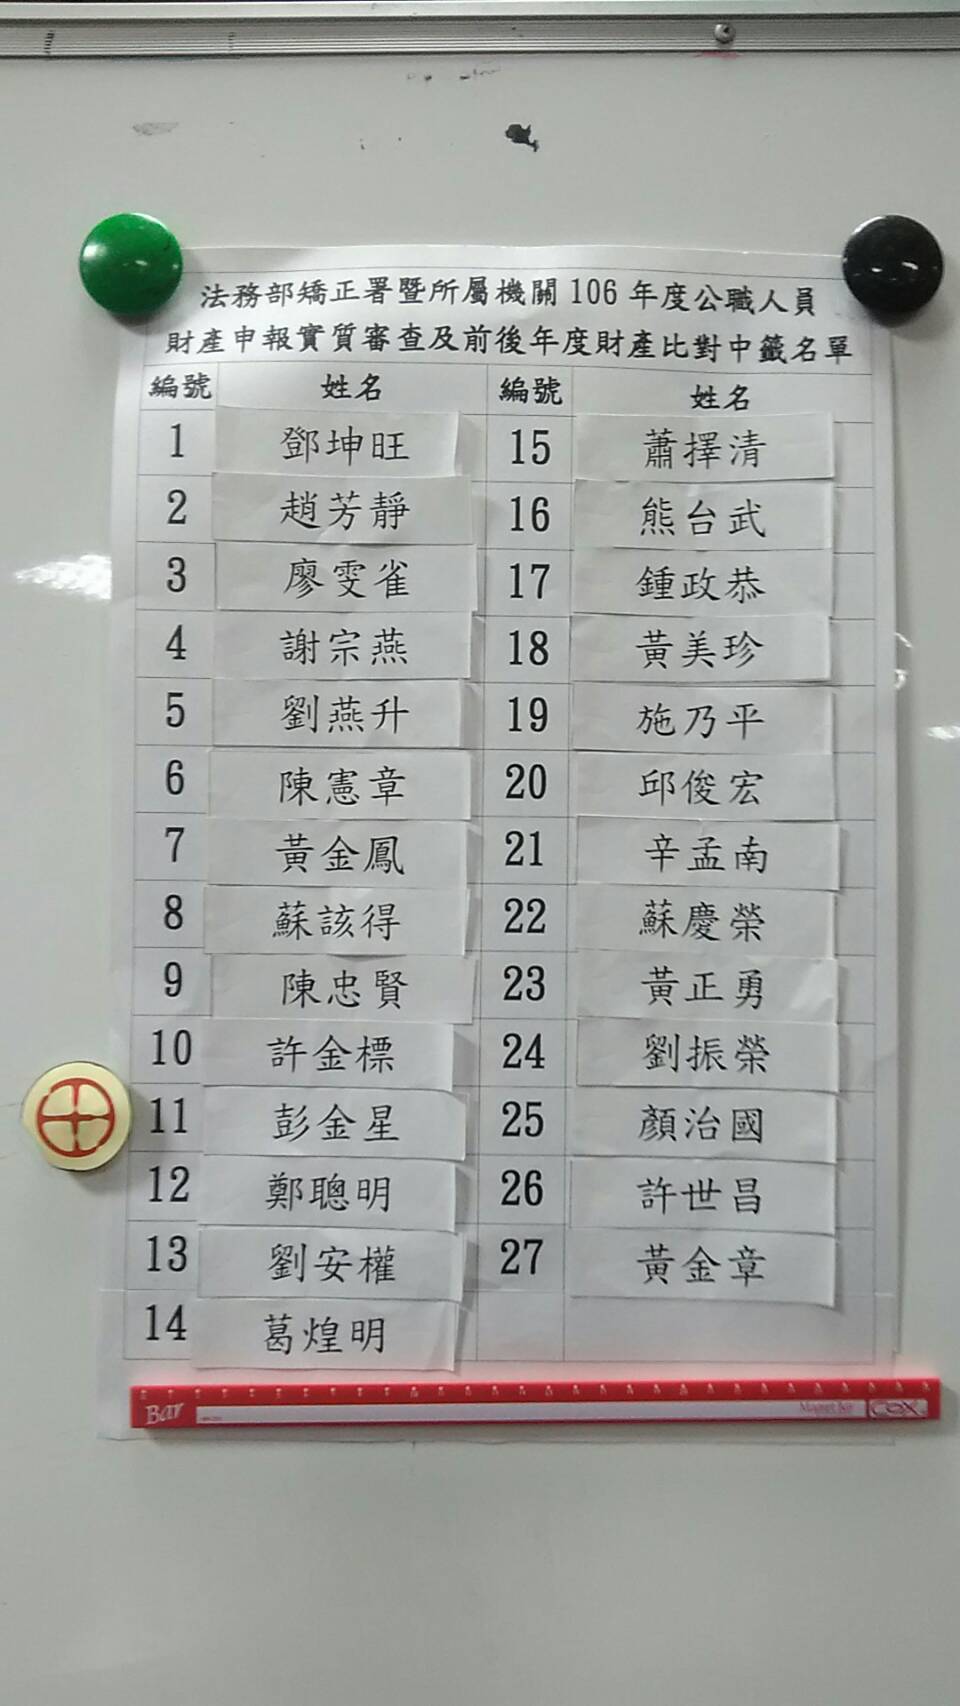 法務部矯正署暨所屬機關106年度公職人員
財產申報實質審查及前後年度財產比對中籤名單
編號 姓名 編號 姓名
1 鄧坤旺 15 蕭擇清
2 趙芳靜 16 熊台武
3 廖雯雀 17 鍾政恭
4 謝宗燕 18 黃美珍
5 劉燕升 19 施乃平
6 陳憲章 20 邱俊宏
7 黃金鳳 21 辛孟南
8 蘇該得 22 蘇慶榮
9 陳忠賢 23 黃正勇
10 許金標 24 劉振榮
11 彭金星 25 顏治國
12 鄭聰明 26 許世昌
13 劉安權 27 黃金章
14 葛煌明
Bar COX